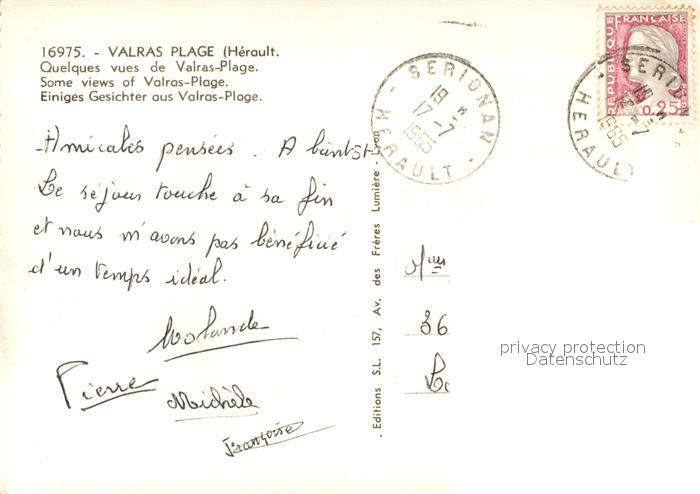 16975. - VALRAS PLAGE (Hérault.
Quelques vues de Valras-Plage.
Some views of Valras-Plage.
Einiges Gesichter aus Valras-Plage.
Amicales pensées. A bientôt
Le séjour touche à sa fin
et nous n'avons pas bénéficié
d'un temps idéal.
Yolande
Pierre
Michèle
Françoise
- Editions S.L. 157, Av. des Frères Lumière - Lyon
SERIGNAN
19
17-7
1965
- HERAULT -
REPUBLIQUE FRANÇAISE
0,25
SERIGNAN
19
17-7
1965
HERAULT
36
privacy protection
Datenschutz